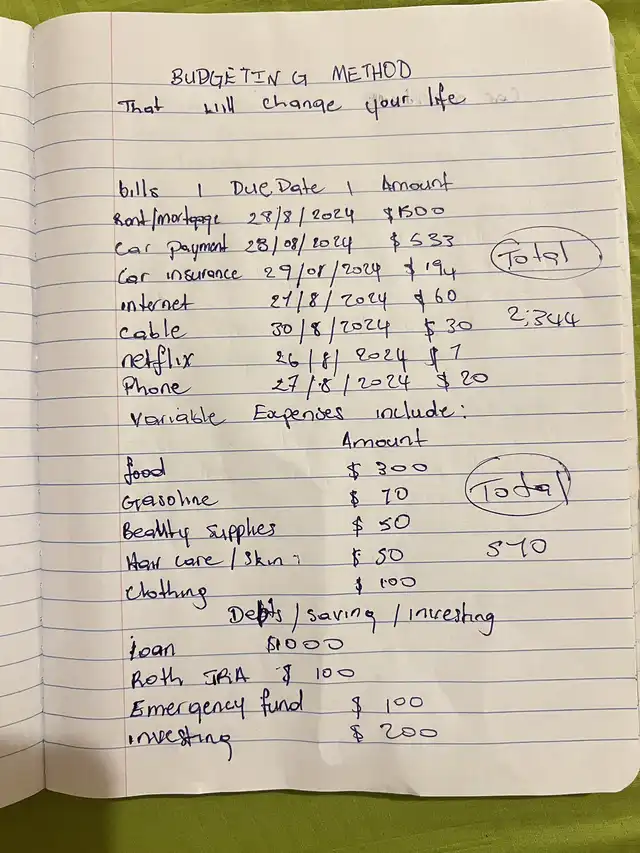 BUDGETING METHOD
That will change your life
bills | Due Date | Amount
Rent/mortgage 28/8/2024 $1500
Car payment 28/08/2024 $533
Car insurance 29/08/2024 $194
internet 27/8/2024 $60
cable 30/8/2024 $30
netflix 26/8/2024 $7
Phone 27/8/2024 $20
Total
2;344
Variable Expenses include:
Amount
food $300
Gasoline $70
Beality supplies $50
Hair care/skin: $50
Clothing $100
Total
570
Debts/saving/investing
loan $1000
Roth IRA $100
Emergency fund $100
investing $200